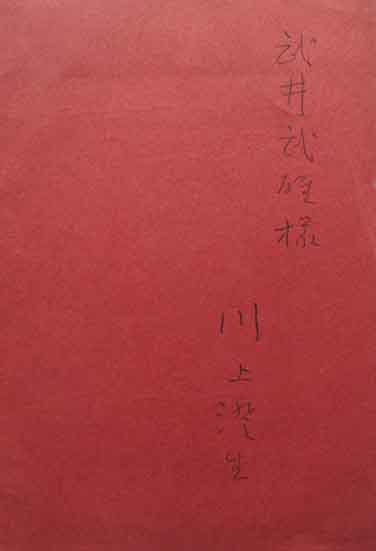 武井武雄様
川上澄生